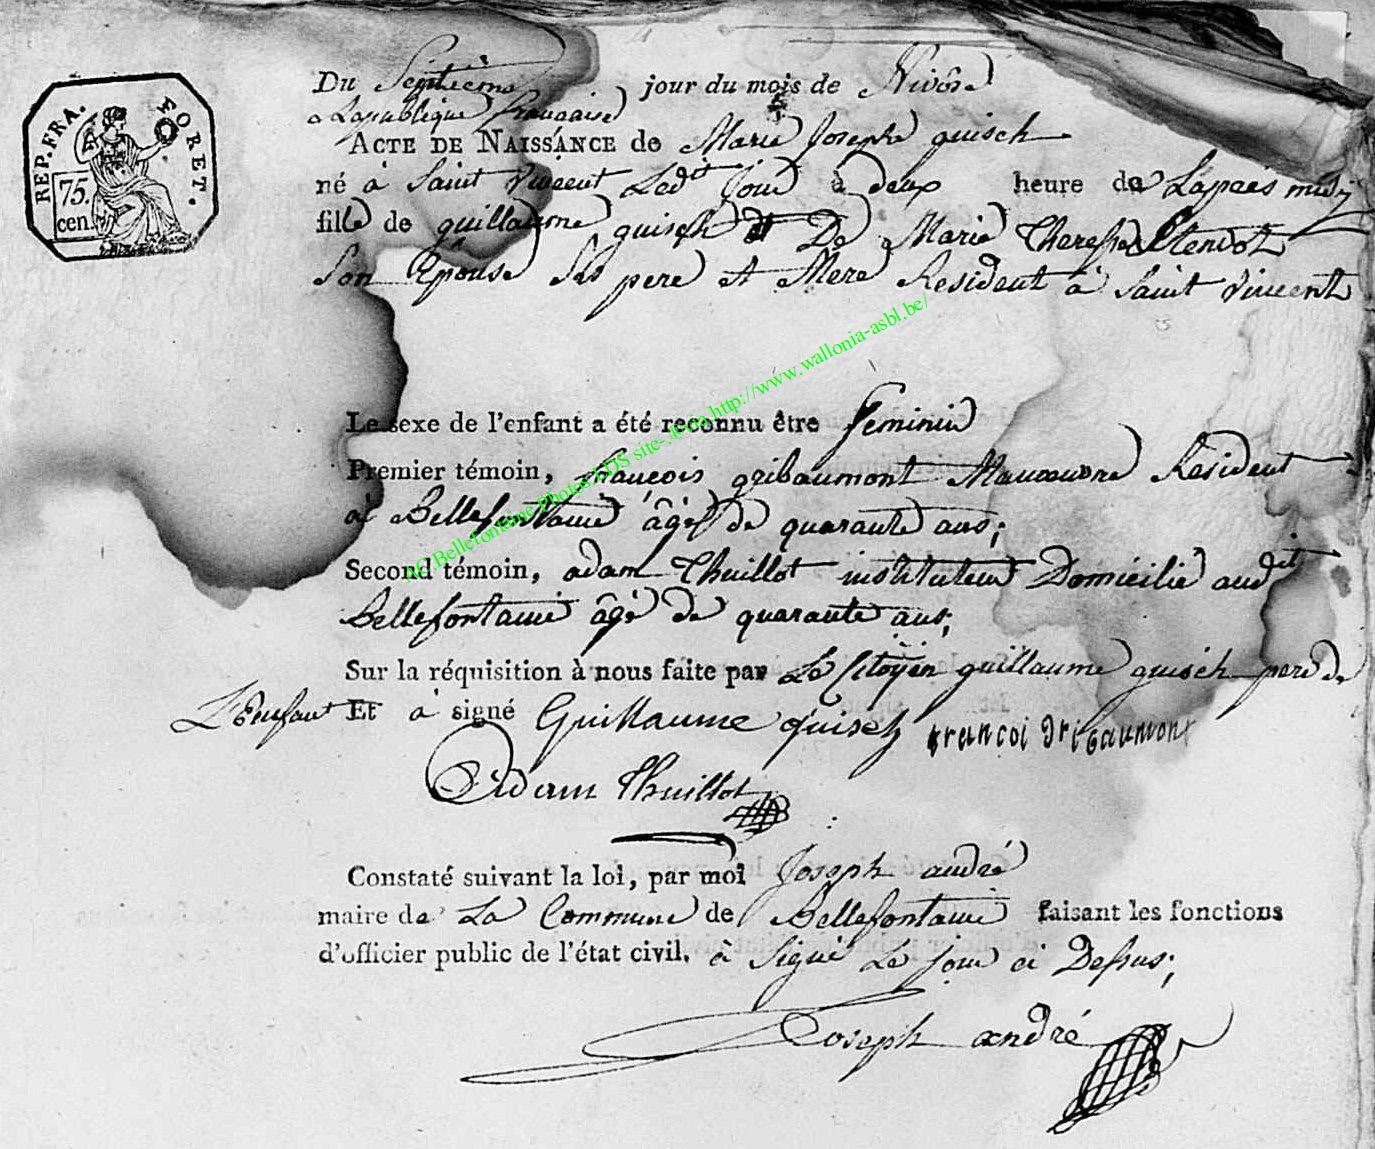 REP. FRA.
FORET.
75.
cen.
Du Septième jour du mois de Nivôse
Republique française
ACTE DE NAISSANCE de Marie Josephe quisch
né à Saint vincent Ledit Jour à deux heure de Lapres midy
fille de guillaume quisch et De Marie Therese
Son Epouse Ses pere et Mere Resident à Saint vincent
Le sexe de l'enfant a été reconnu être feminin
Premier témoin, françois gribaumont Manoeuvre Resident
à Bellefontaine âgé de quarante ans;
Second témoin, adam Thuillot instituteur Domicilié audit
Bellefontaine âgé de quarante ans;
Sur la réquisition à nous faite par Le Citoyen guillaume quisch pere de
L'Enfant Et à signé Guillaume quisch francoi gribaumont
Adam Thuillot
Constaté suivant la loi, par moi Joseph andré
maire de La Commune de Bellefontaine faisant les fonctions
d'officier public de l'état civil. à Signé Le jour ci Dessus;
Joseph andré
AC.Bellefontaine.Photos LDS site- via http://www.wallonia-asbl.be/